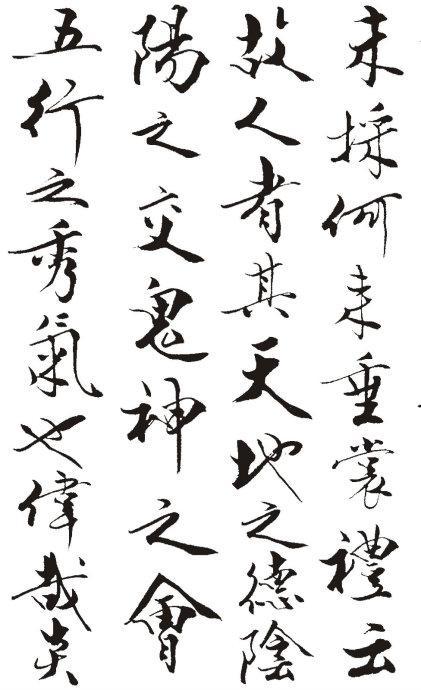 未採何未垂裳禮云
故人者其天地之德陰
陽之交鬼神之會
五行之秀氣也偉哉炎